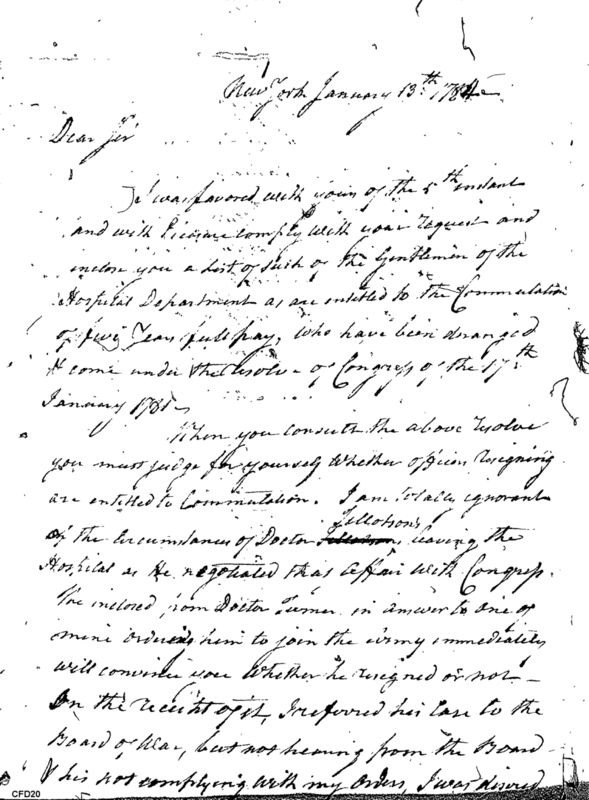 New York January 13.th 1784
Dear Sir
I was favored with yours of the 5th instant
and with Pleasure comply with your request and
inclose you a List of such of the Gentlemen of the
Hospital Department as are entitled to the Commutation
of five Years full pay, who have been deranged
& come under the resolve of Congress of the 17th
January 1781
When you consult the above resolve
you must judge for yourself whether officers resigning
are entitled to Commutation. I am totally ignorant
of the Circumstances of Doctor Tillotson's leaving the
Hospital as He negotiated that affair with Congress.
The inclosed from Doctor Turner in answer to one of
mine ordering him to join the army immediately
will convince you whether he resigned or not
On the receipt of it, I referred his Case to the
Board of War, but not hearing from the Board
& his not complying with my orders, I was
CFD20